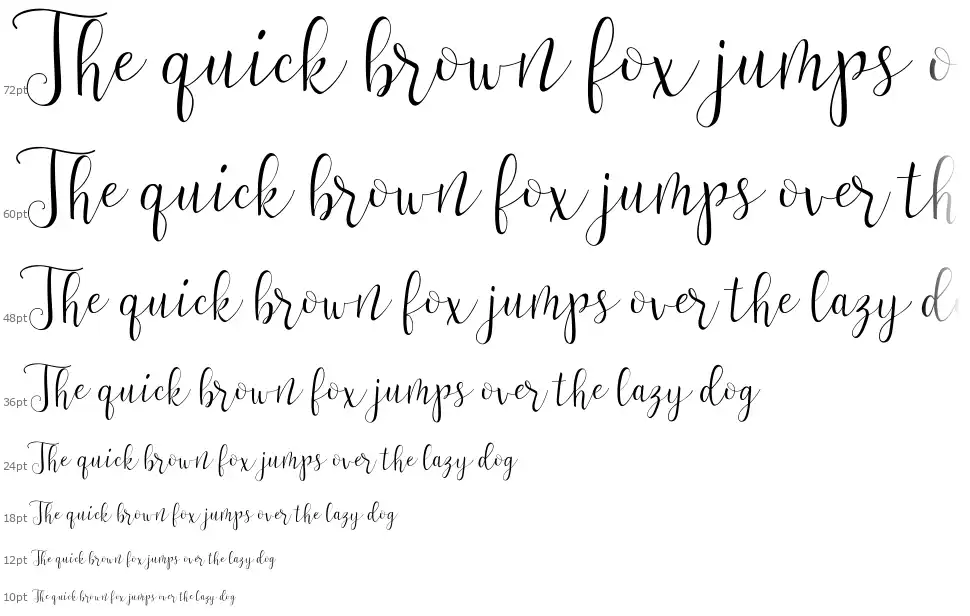 72pt The quick brown fox jumps o
60pt The quick brown fox jumps over th
48pt The quick brown fox jumps over the lazy d
36pt The quick brown fox jumps over the lazy dog
24pt The quick brown fox jumps over the lazy dog
18pt The quick brown fox jumps over the lazy dog
12pt The quick brown fox jumps over the lazy dog
10pt The quick brown fox jumps over the lazy dog